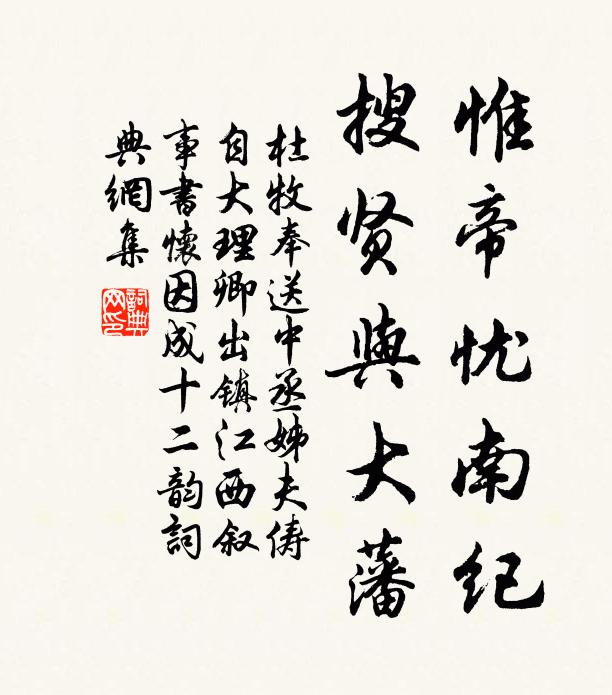 惟帝忧南纪
搜贤與大藩
杜牧奉送中丞姊夫俦
自大理卿出镇江西叙
事書懷因成十二韵詞
典網集
詞典網印